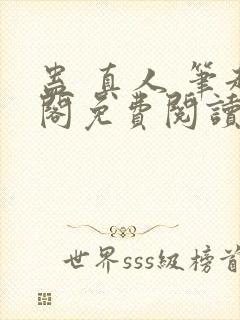 蛊真人 筆趣
閣免費閱讀
世界sss级榜首